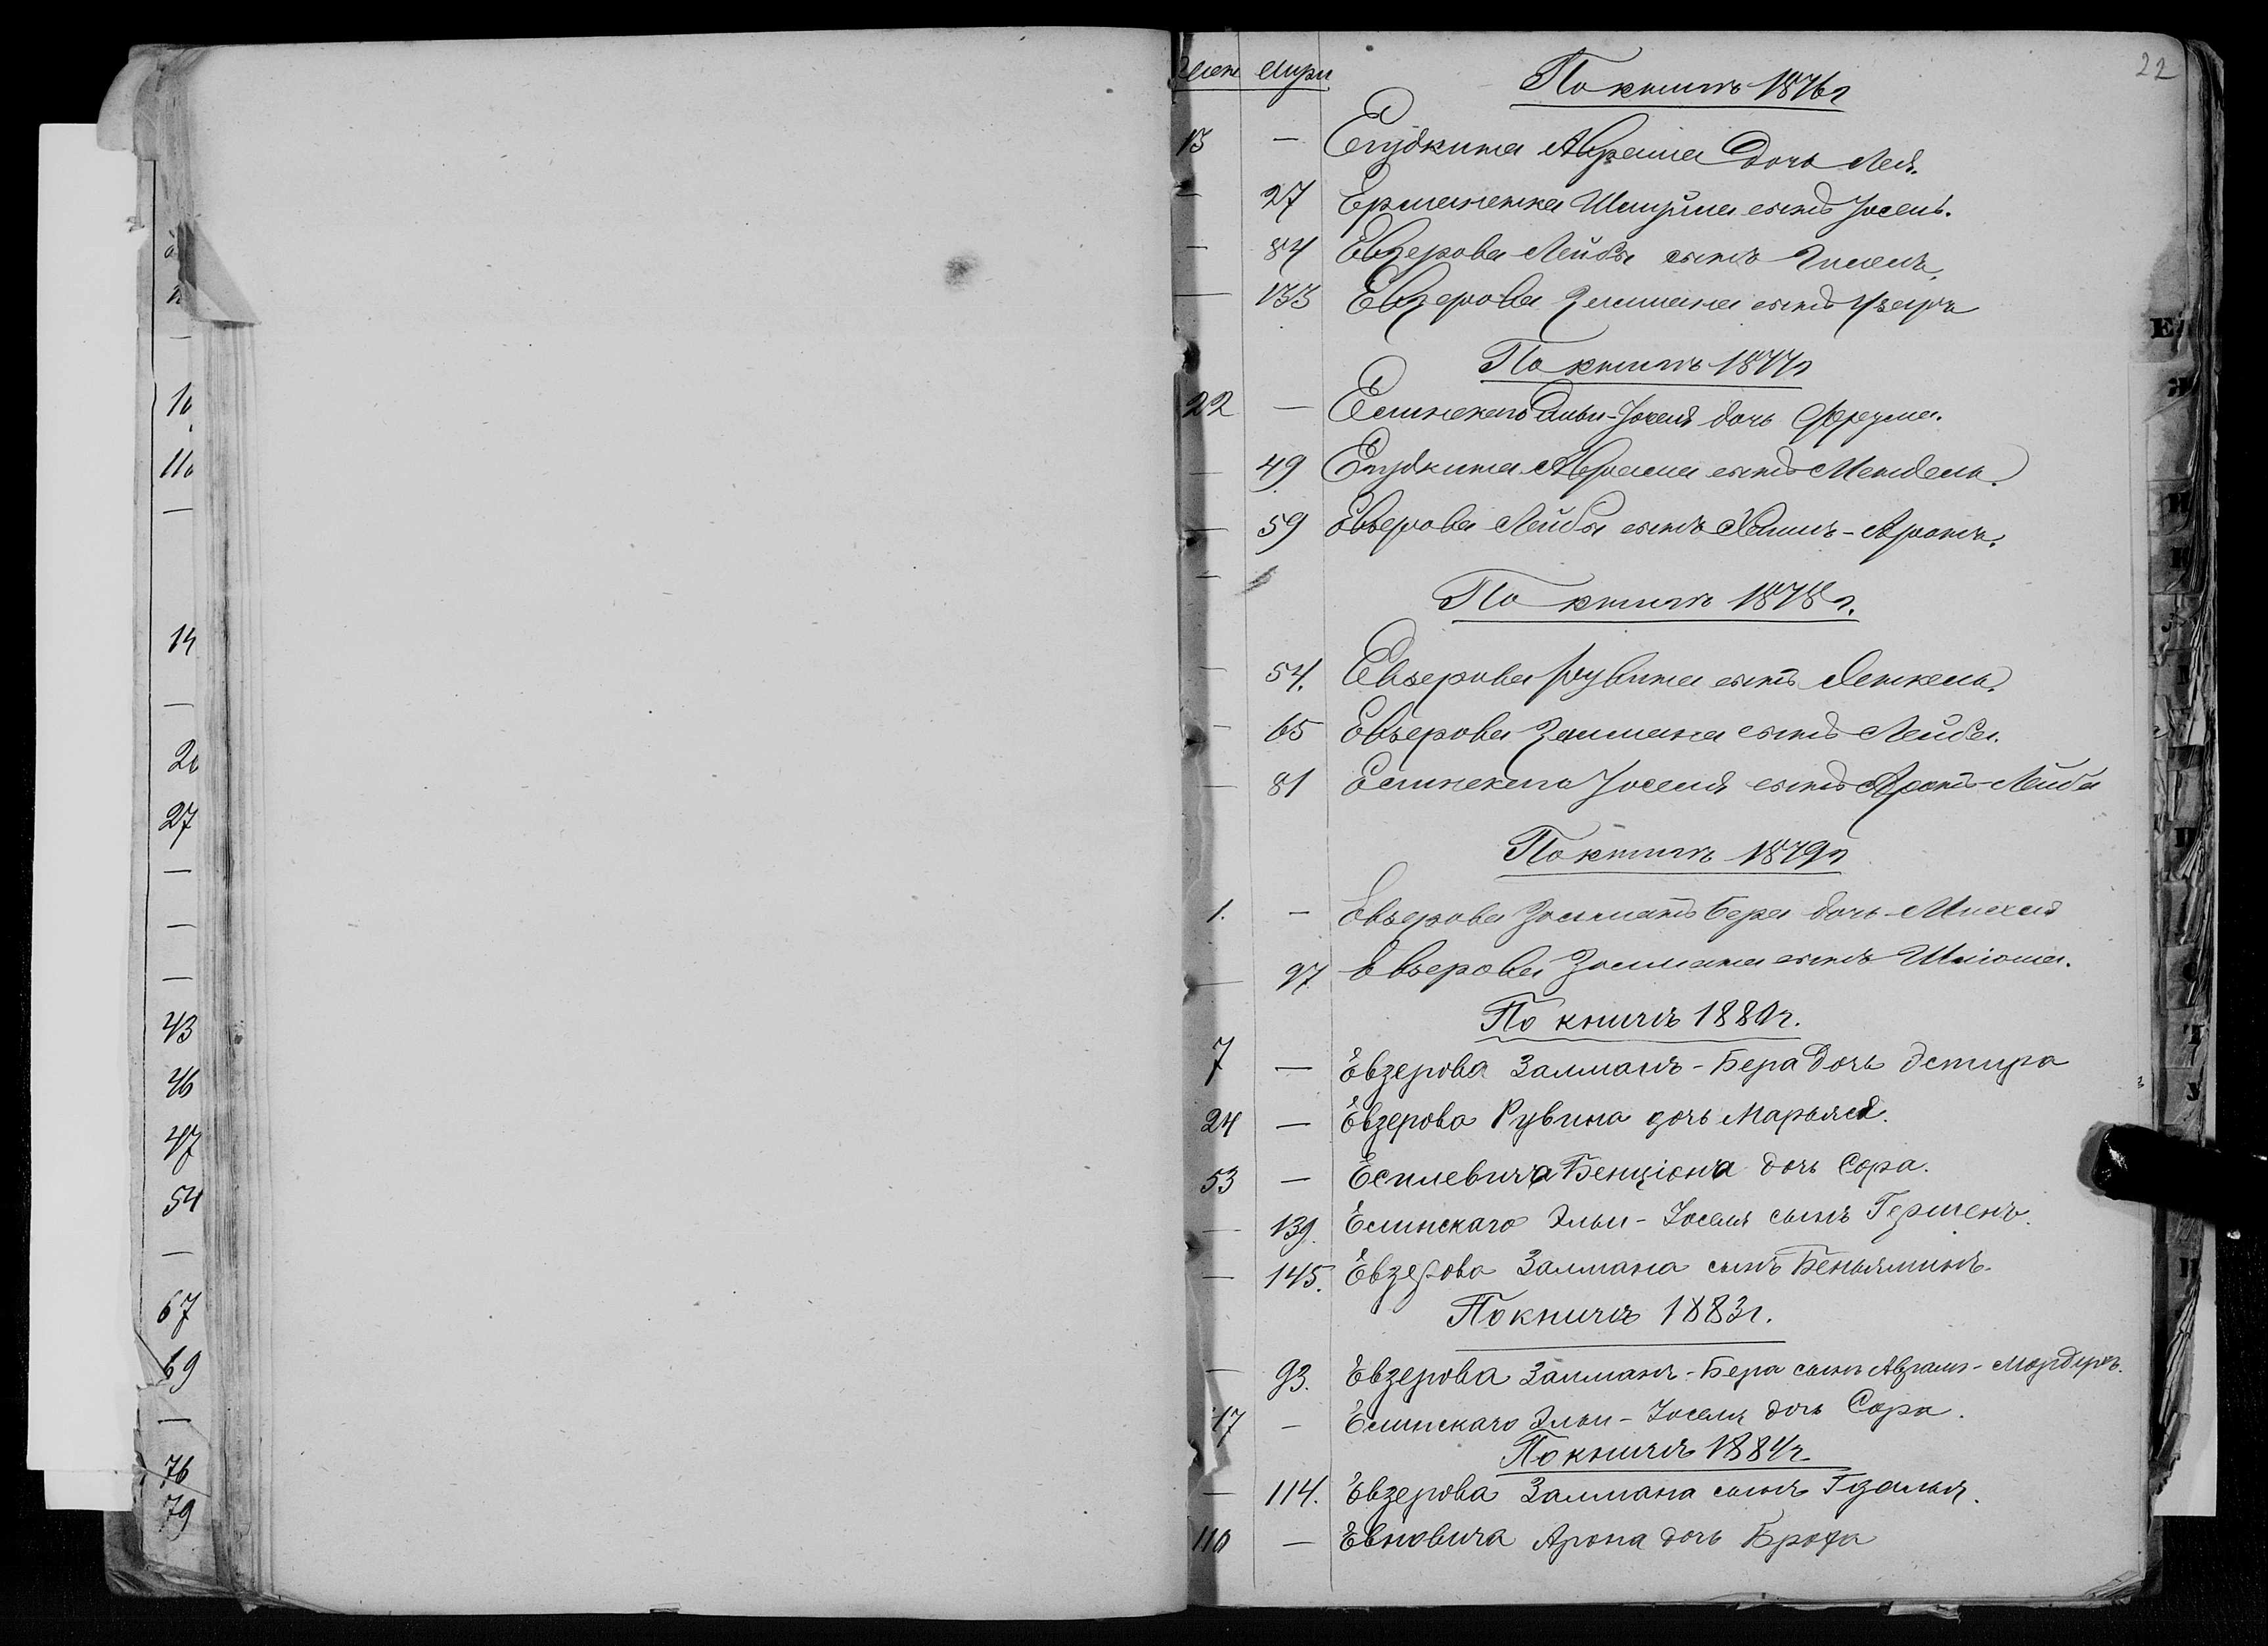 22
Жен мущ
По книгѣ 1876 г
13 — Егудкина Аврама дочь Лея.
— 27 Ерманенка сынъ Іосель.
— 84 Евзерова Лейбы сынъ
— 133 Евзерова Залмана сынъ
По книгѣ 1877 г
22 — Еслинскаго Эльи-Іоселя дочь Фрума.
— 49 Егудкина Аврама сынъ Мендель.
— 59 Евзерова Лейбы сынъ Хаимъ-Аронъ.
—
По книгѣ 1878 г.
— 54. Евзерова Рувина сынъ Янкель.
— 65 Евзерова Залмана сынъ Лейба.
— 81 Еслинскаго Іоселя сынъ Аронъ-Лейба
По книгѣ 1879 г
1. — Евзерова Залманъ Бера дочь
— 97 Евзерова Залмана сынъ Шліома.
По книгѣ 1880 г.
7 — Евзерова Залманъ-Бера дочь Эстира
24 — Евзерова Рувина дочь Марьяся.
53 — Есилевича Бенціона дочь Сора.
— 139. Еслинскаго Эльи-Іоселя сынъ Гершенъ.
— 145. Евзерова Залмана сынъ Беньяминъ.
По книгѣ 1883 г.
— 93. Евзерова Залманъ-Бера сынъ Абрамъ-Мордухъ.
17 — Еслинскаго Эльи-Іоселя дочь Сора.
По книгѣ 1884 г.
— 114. Евзерова Залмана сынъ Гдалья.
110 — Евновича Арона дочьБроха
10
110
—
14
—
20
27
—
—
—
43
46
47
54
—
67
69
—
76
79
Е